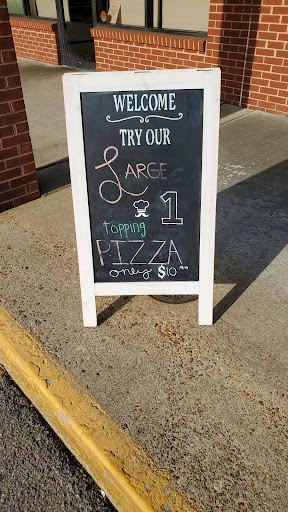 WELCOME
TRY OUR
LARGE
1
topping
PIZZA
only $10.99